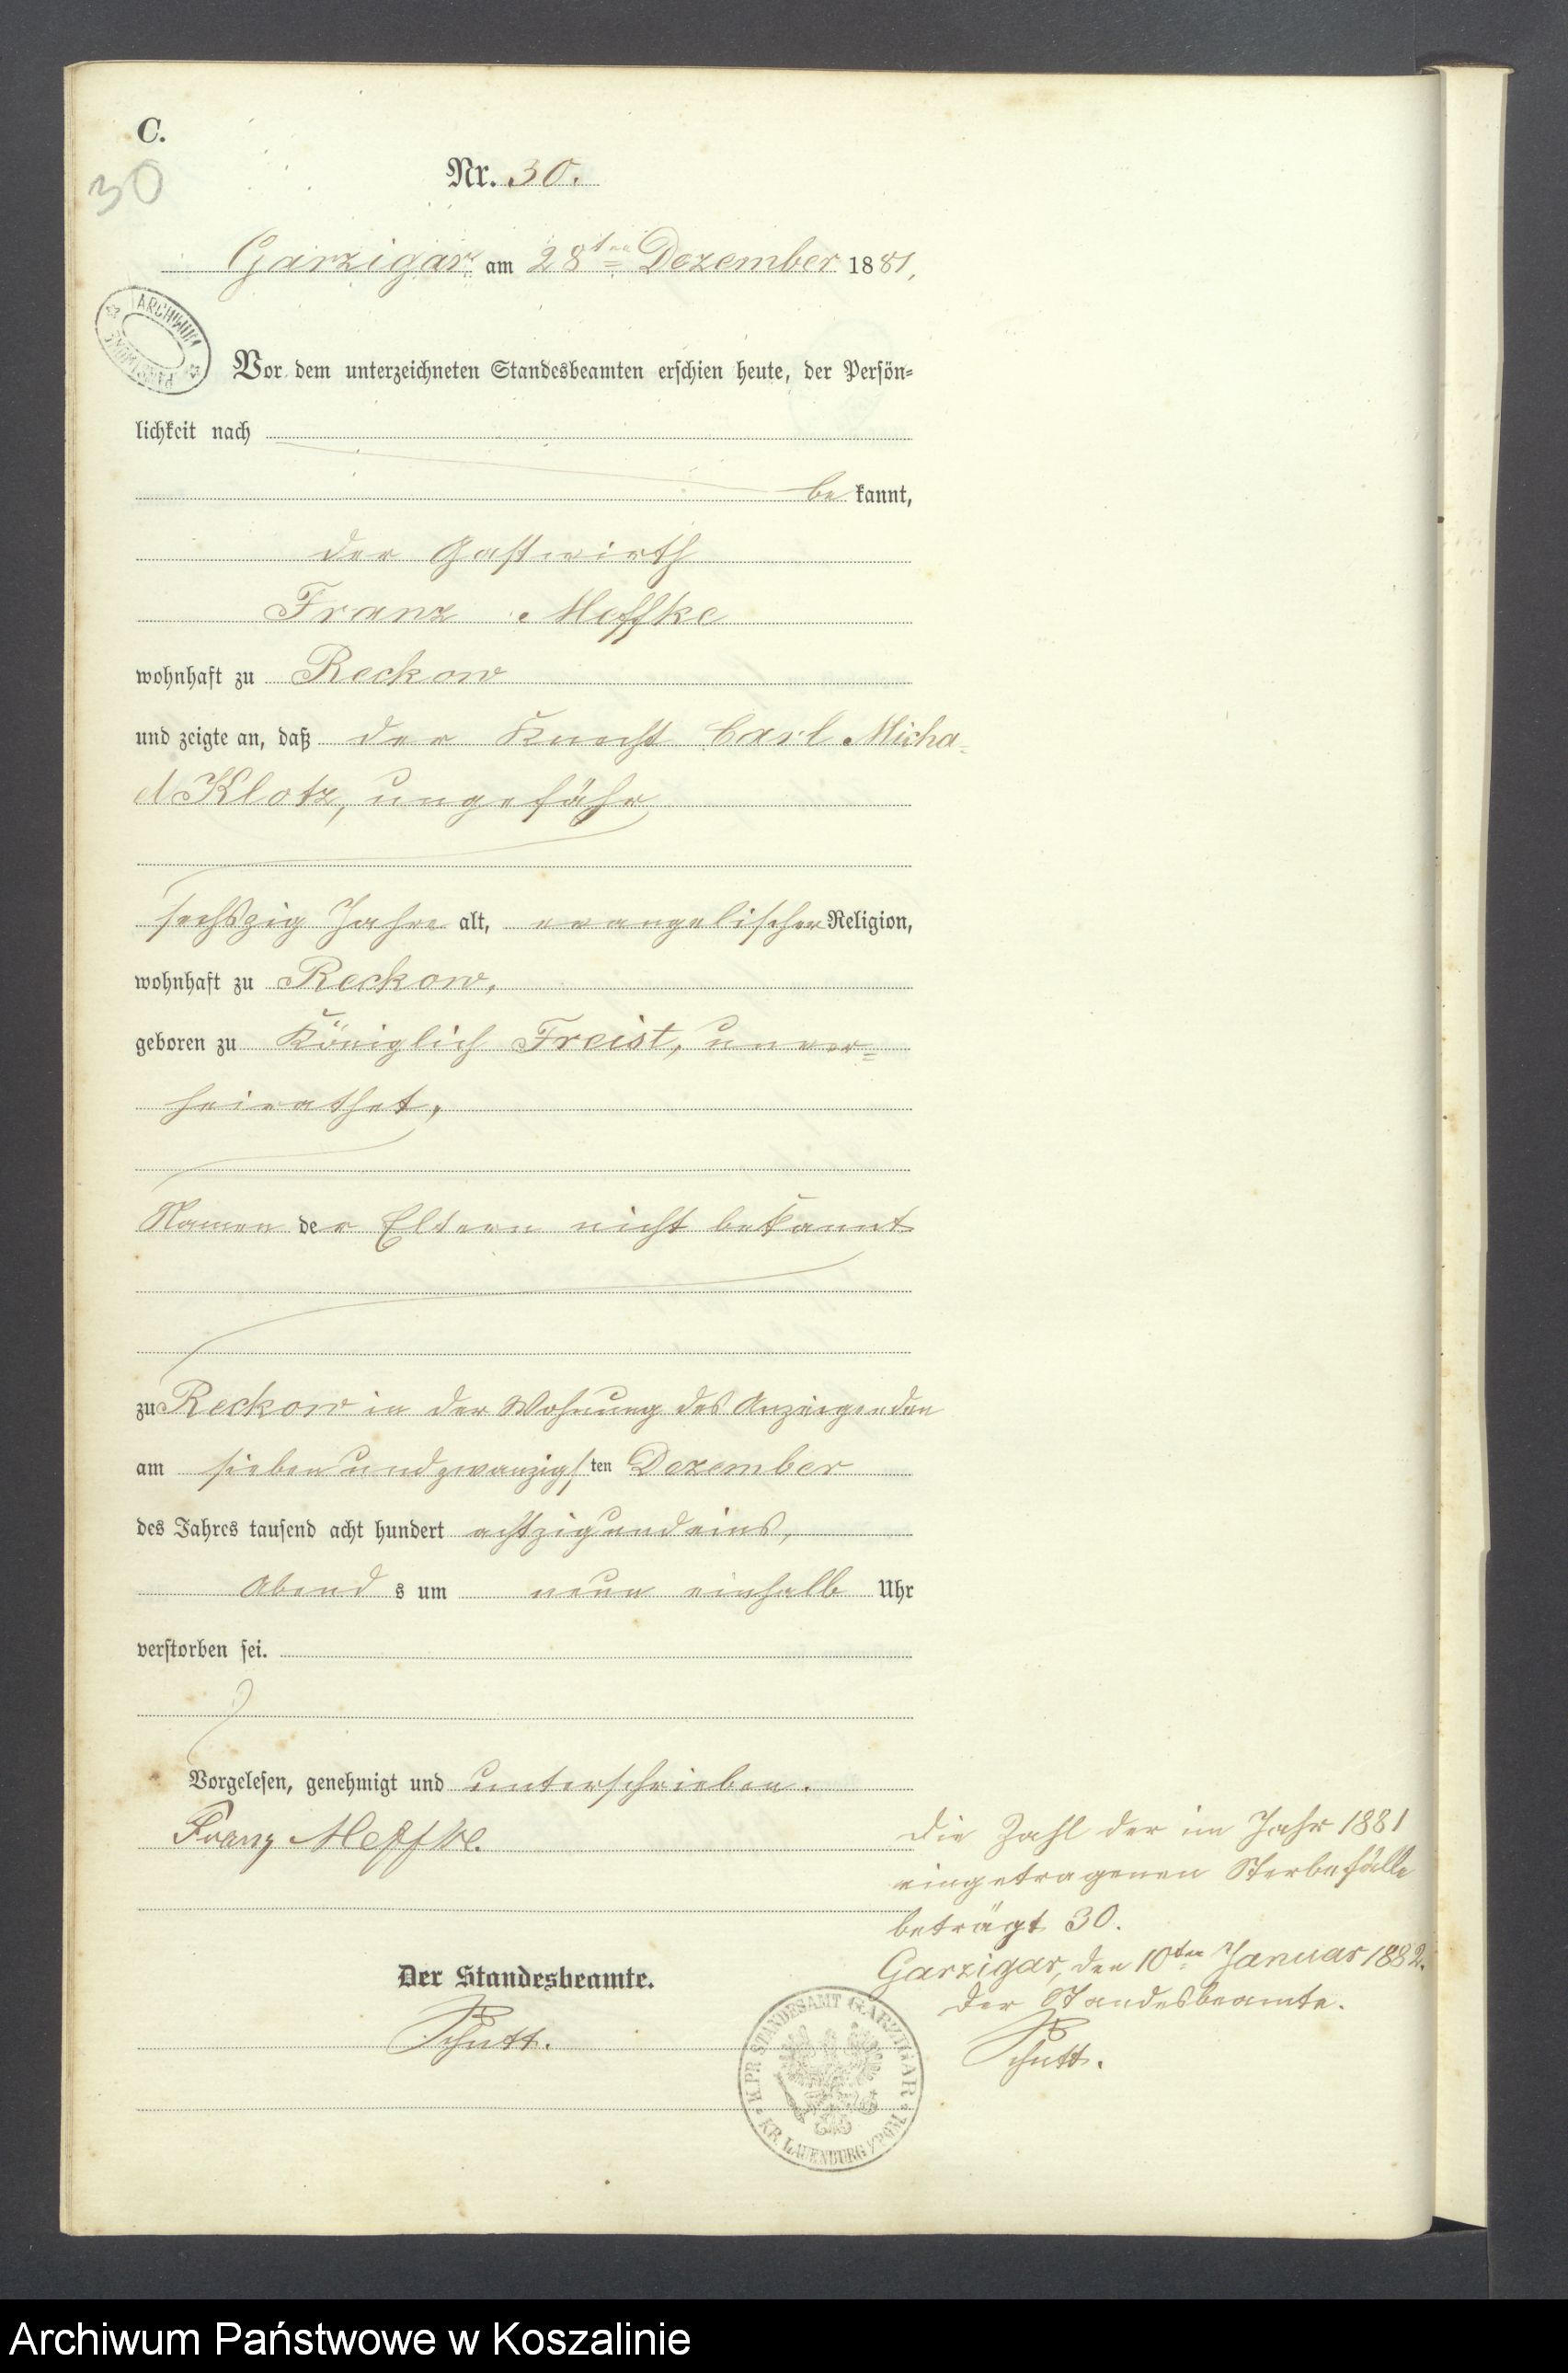 C.
30
Nr. 30.
Garzigar am 28ten Dezember 1881,
ARCHIWUM PAŃSTWOWE
Vor dem unterzeichneten Standesbeamten erschien heute, der Persön-
lichkeit nach
bekannt,
der Gastwirth
Franz Meffke
wohnhaft zu Reckow
und zeigte an, daß der Knecht Carl Micha-
el Klotz, ungefähr
sechszig Jahre alt, evangelischer Religion,
wohnhaft zu Reckow,
geboren zu Königlich Freist, unver-
heirathet,
Namen der Eltern nicht bekannt
zu Reckow in der Wohnung des Anzeigenden
am siebenundzwanzigsten Dezember
des Jahres tausend acht hundert achtzigundeins,
Abends um neun einhalb Uhr
verstorben sei.
Vorgelesen, genehmigt und unterschrieben.
Franz Meffke.
Die Zahl der im Jahr 1881
eingetragenen Sterbefälle
beträgt 30.
Garzigar, den 10ten Januar 1882.
Der Standesbeamte.
Schutt.
Der Standesbeamte.
Schutt.
K.PR STANDESAMT GARZIGAR * KR. LAUENBURG I/POM *
Archiwum Państwowe w Koszalinie